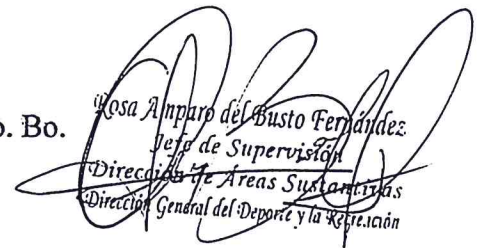 o. Bo.
Rosa Amparo del Busto Fernández
Jefe de Supervisión
Dirección de Áreas Sustantivas
Dirección General del Deporte y la Recreación